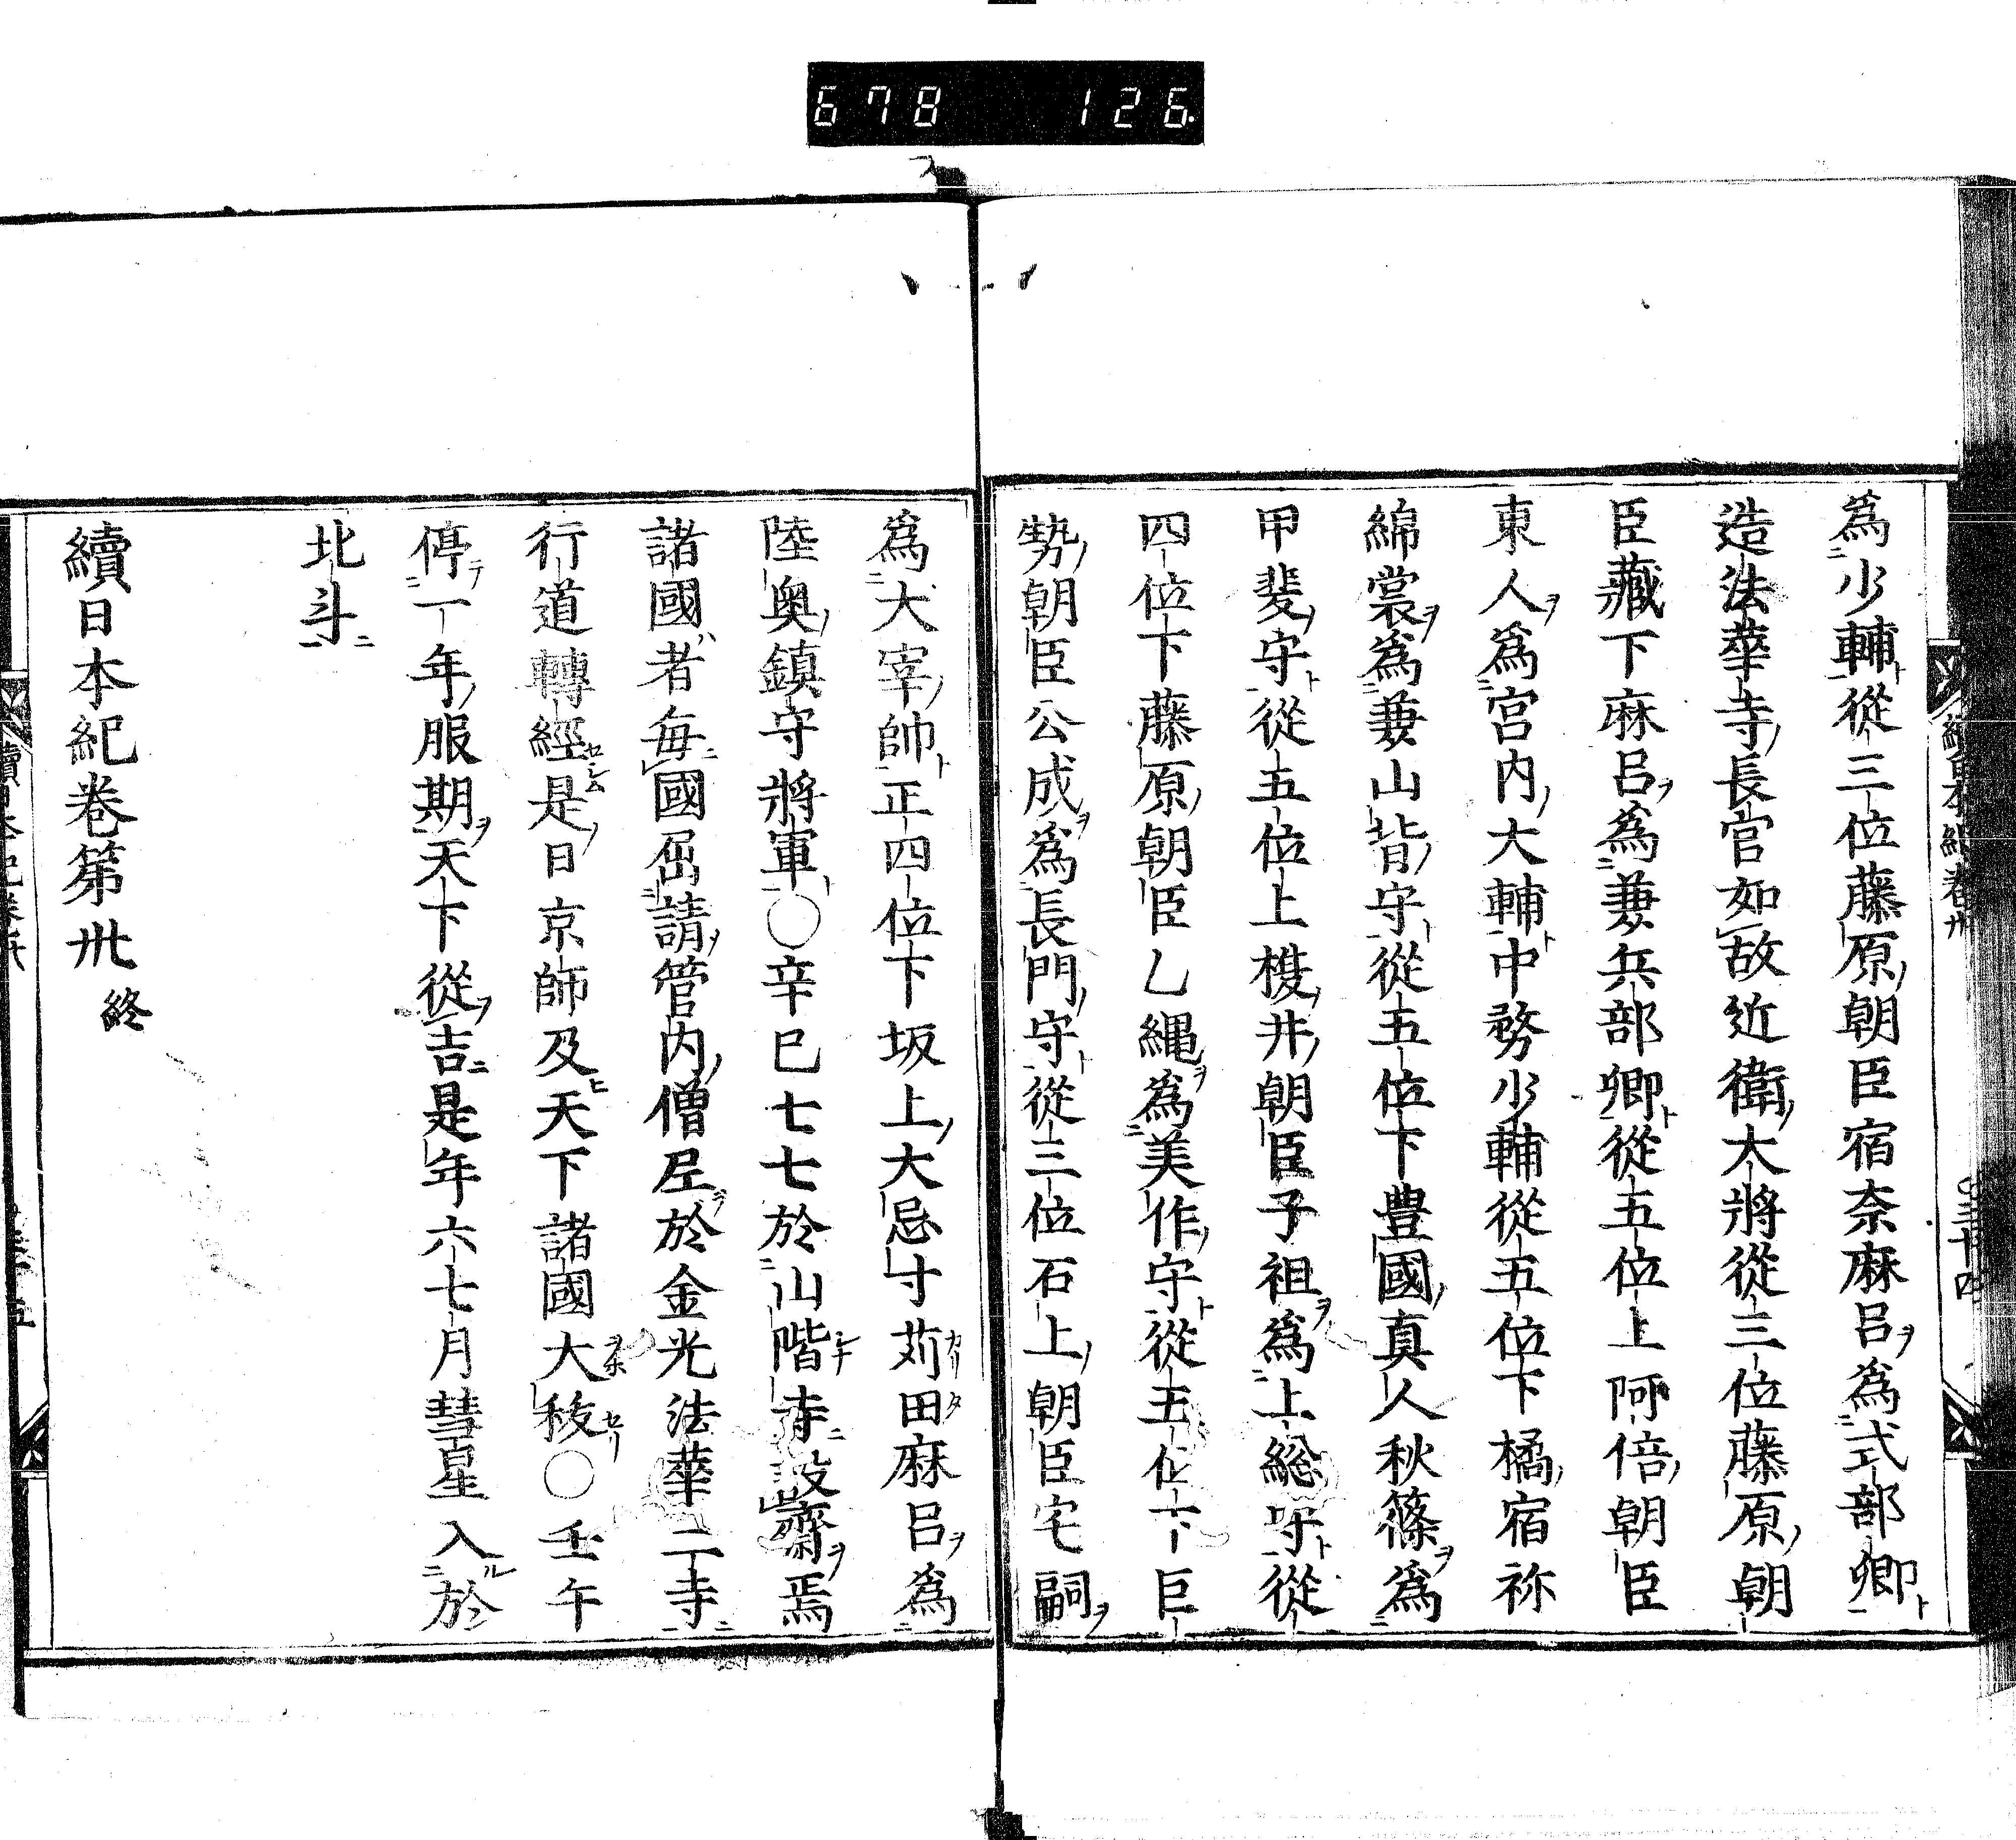 678 126
為少輔從三位藤原朝臣宿奈麻呂為式部卿
造法華寺長官如故近衛大將從三位藤原朝
臣藏下麻呂為兼兵部卿從五位上阿倍朝臣
東人為宮内大輔中務少輔從五位下橘宿祢
綿裳為兼山背守從五位下豊國真人秋篠為
甲斐守從五位上榎井朝臣子祖為上総守從
四位下藤原朝臣乙縄為美作守從五位下巨
勢朝臣公成為長門守從三位石上朝臣宅嗣
為大宰帥正四位下坂上大忌寸苅田麻呂為
陸奥鎮守將軍○辛巳七七於山階寺設齋焉
諸國者毎國屈請管内僧尼於金光法華二寺
行道轉經是日京師及天下諸國大秡○壬午
停一年服期天下從吉是年六七月彗星入於
北斗
續日本紀巻第卅 終